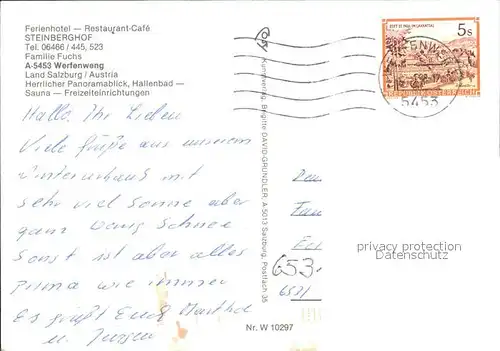 Ferienhotel — Restaurant-Café
STEINBERGHOF
Tel. 06466 / 445, 523
Familie Fuchs
A-5453 Werfenweng
Land Salzburg / Austria
Herrlicher Panoramablick, Hallenbad —
Sauna — Freizeiteinrichtungen
Hallo Ihr Lieben
Viele Grüße aus unserem
Winterurlaub mit
sehr viel Sonne aber
ganz wenig Schnee
Sonst ist aber alles
prima wie immer
Es grüßt Euch Martha
u. Jürgen
Kunstverlag Brigitte DAVID-GRÜNDLER, A 5013 Salzburg, Postfach 35
Nr. W 10297
5 s
REPUBLIK ÖSTERREICH
5453
653
privacy protection
Datenschutz